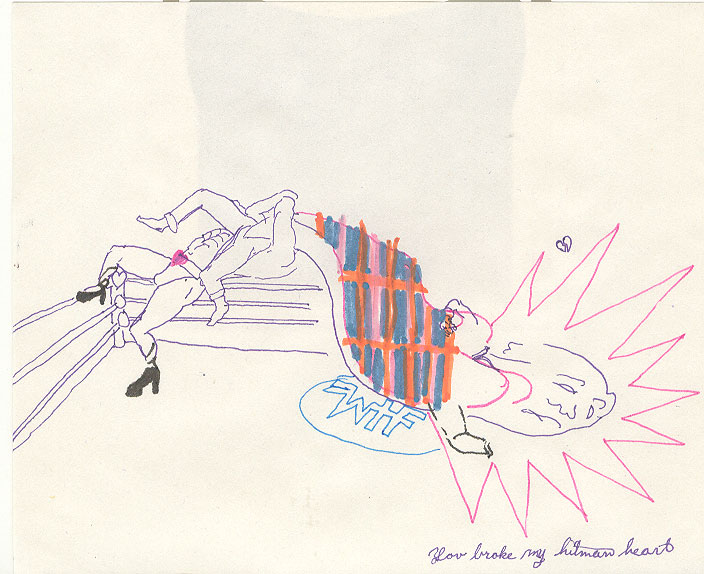 WTF
You broke my hitman heart